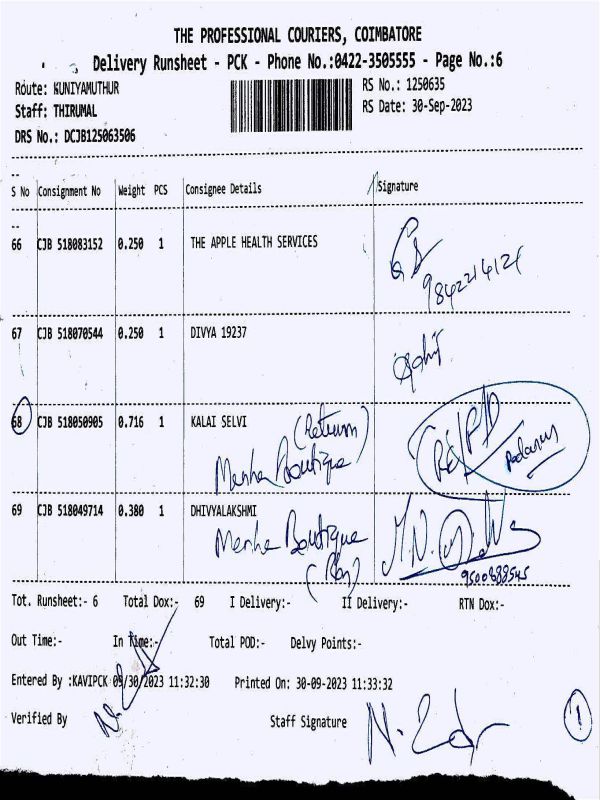 THE PROFESSIONAL COURIERS, COIMBATORE
Delivery Runsheet - PCK - Phone No.:0422-3505555 - Page No.:6
Route: KUNIYAMUTHUR
RS No.: 1250635
Staff: THIRUMAL
RS Date: 30-Sep-2023
DRS No.: DCJB125063506
S No Consignment No Weight PCS Consignee Details Signature
66 CJB 518083152 0.250 1 THE APPLE HEALTH SERVICES
9842214124
67 CJB 518070544 0.250 1 DIVYA 19237
68 CJB 518050905 0.716 1 KALAI SELVI (Return)
Menha Boutique
69 CJB 518049714 0.380 1 DHIVYALAKSHMI
Menha Boutique
9500888545
Tot. Runsheet:- 6 Total Dox:- 69 I Delivery:- II Delivery:- RTN Dox:-
Out Time:- In Time:- Total POD:- Delvy Points:-
Entered By :KAVIPCK 09/30/2023 11:32:30 Printed On: 30-09-2023 11:33:32
Verified By Staff Signature
1